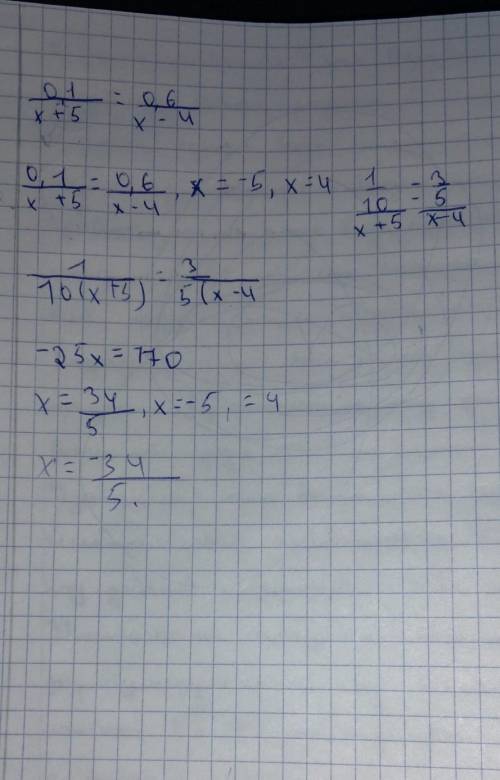 0,1/x+5 = 0,6/x-4
0,1/x+5 = 0,6/x-4, x=-5, x=4 1/10/x+5 = 3/5/x-4
1/10(x+5) = 3/5(x-4
-25x=170
x=34/5, x=-5, =4
x=-34/5.